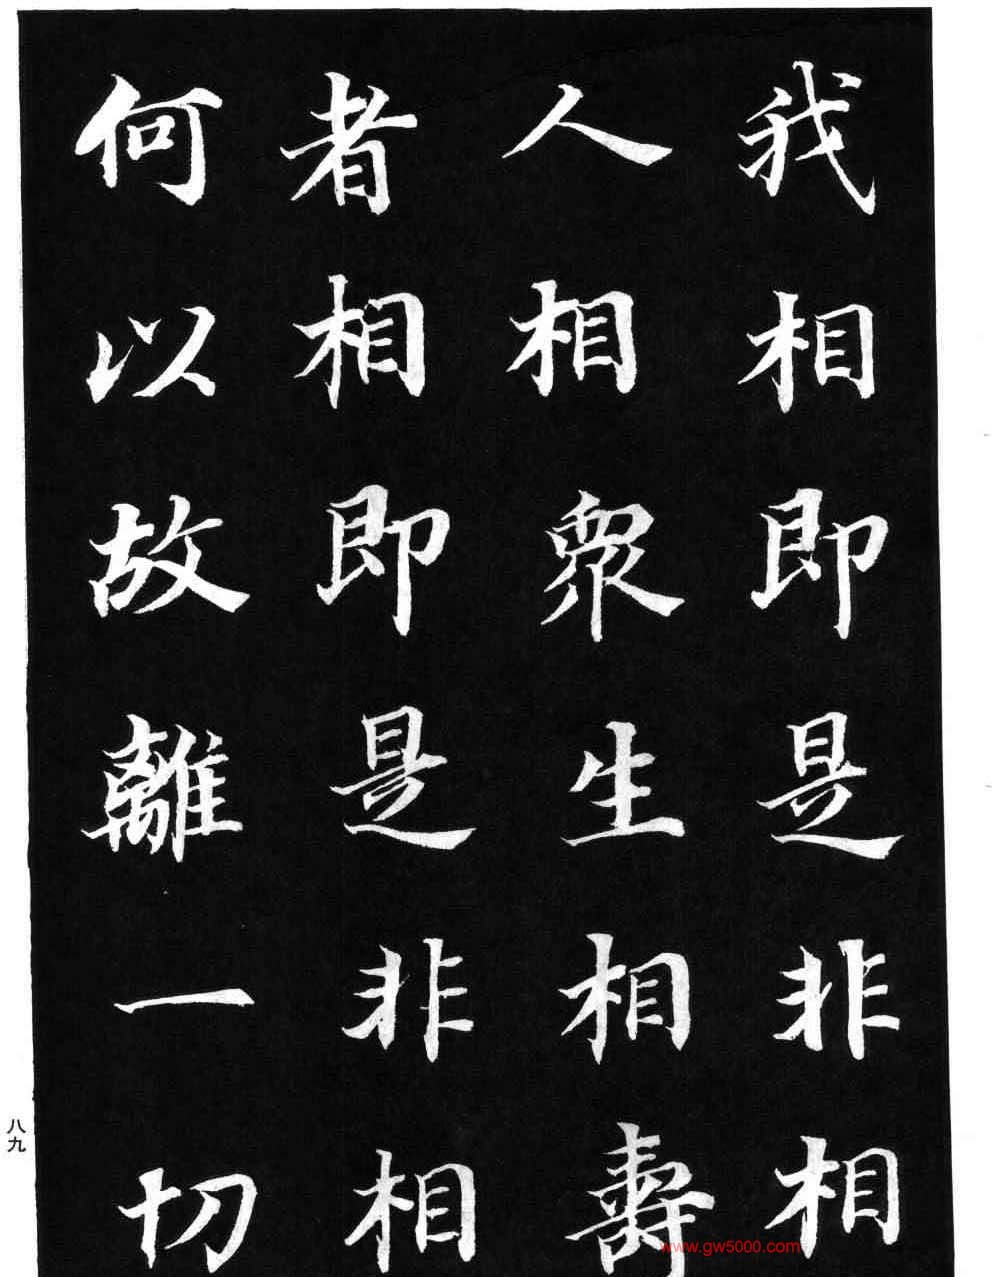 我相即是非相
人相眾生相壽
者相即是非相
何以故離一切
八九
www.gw5000.com